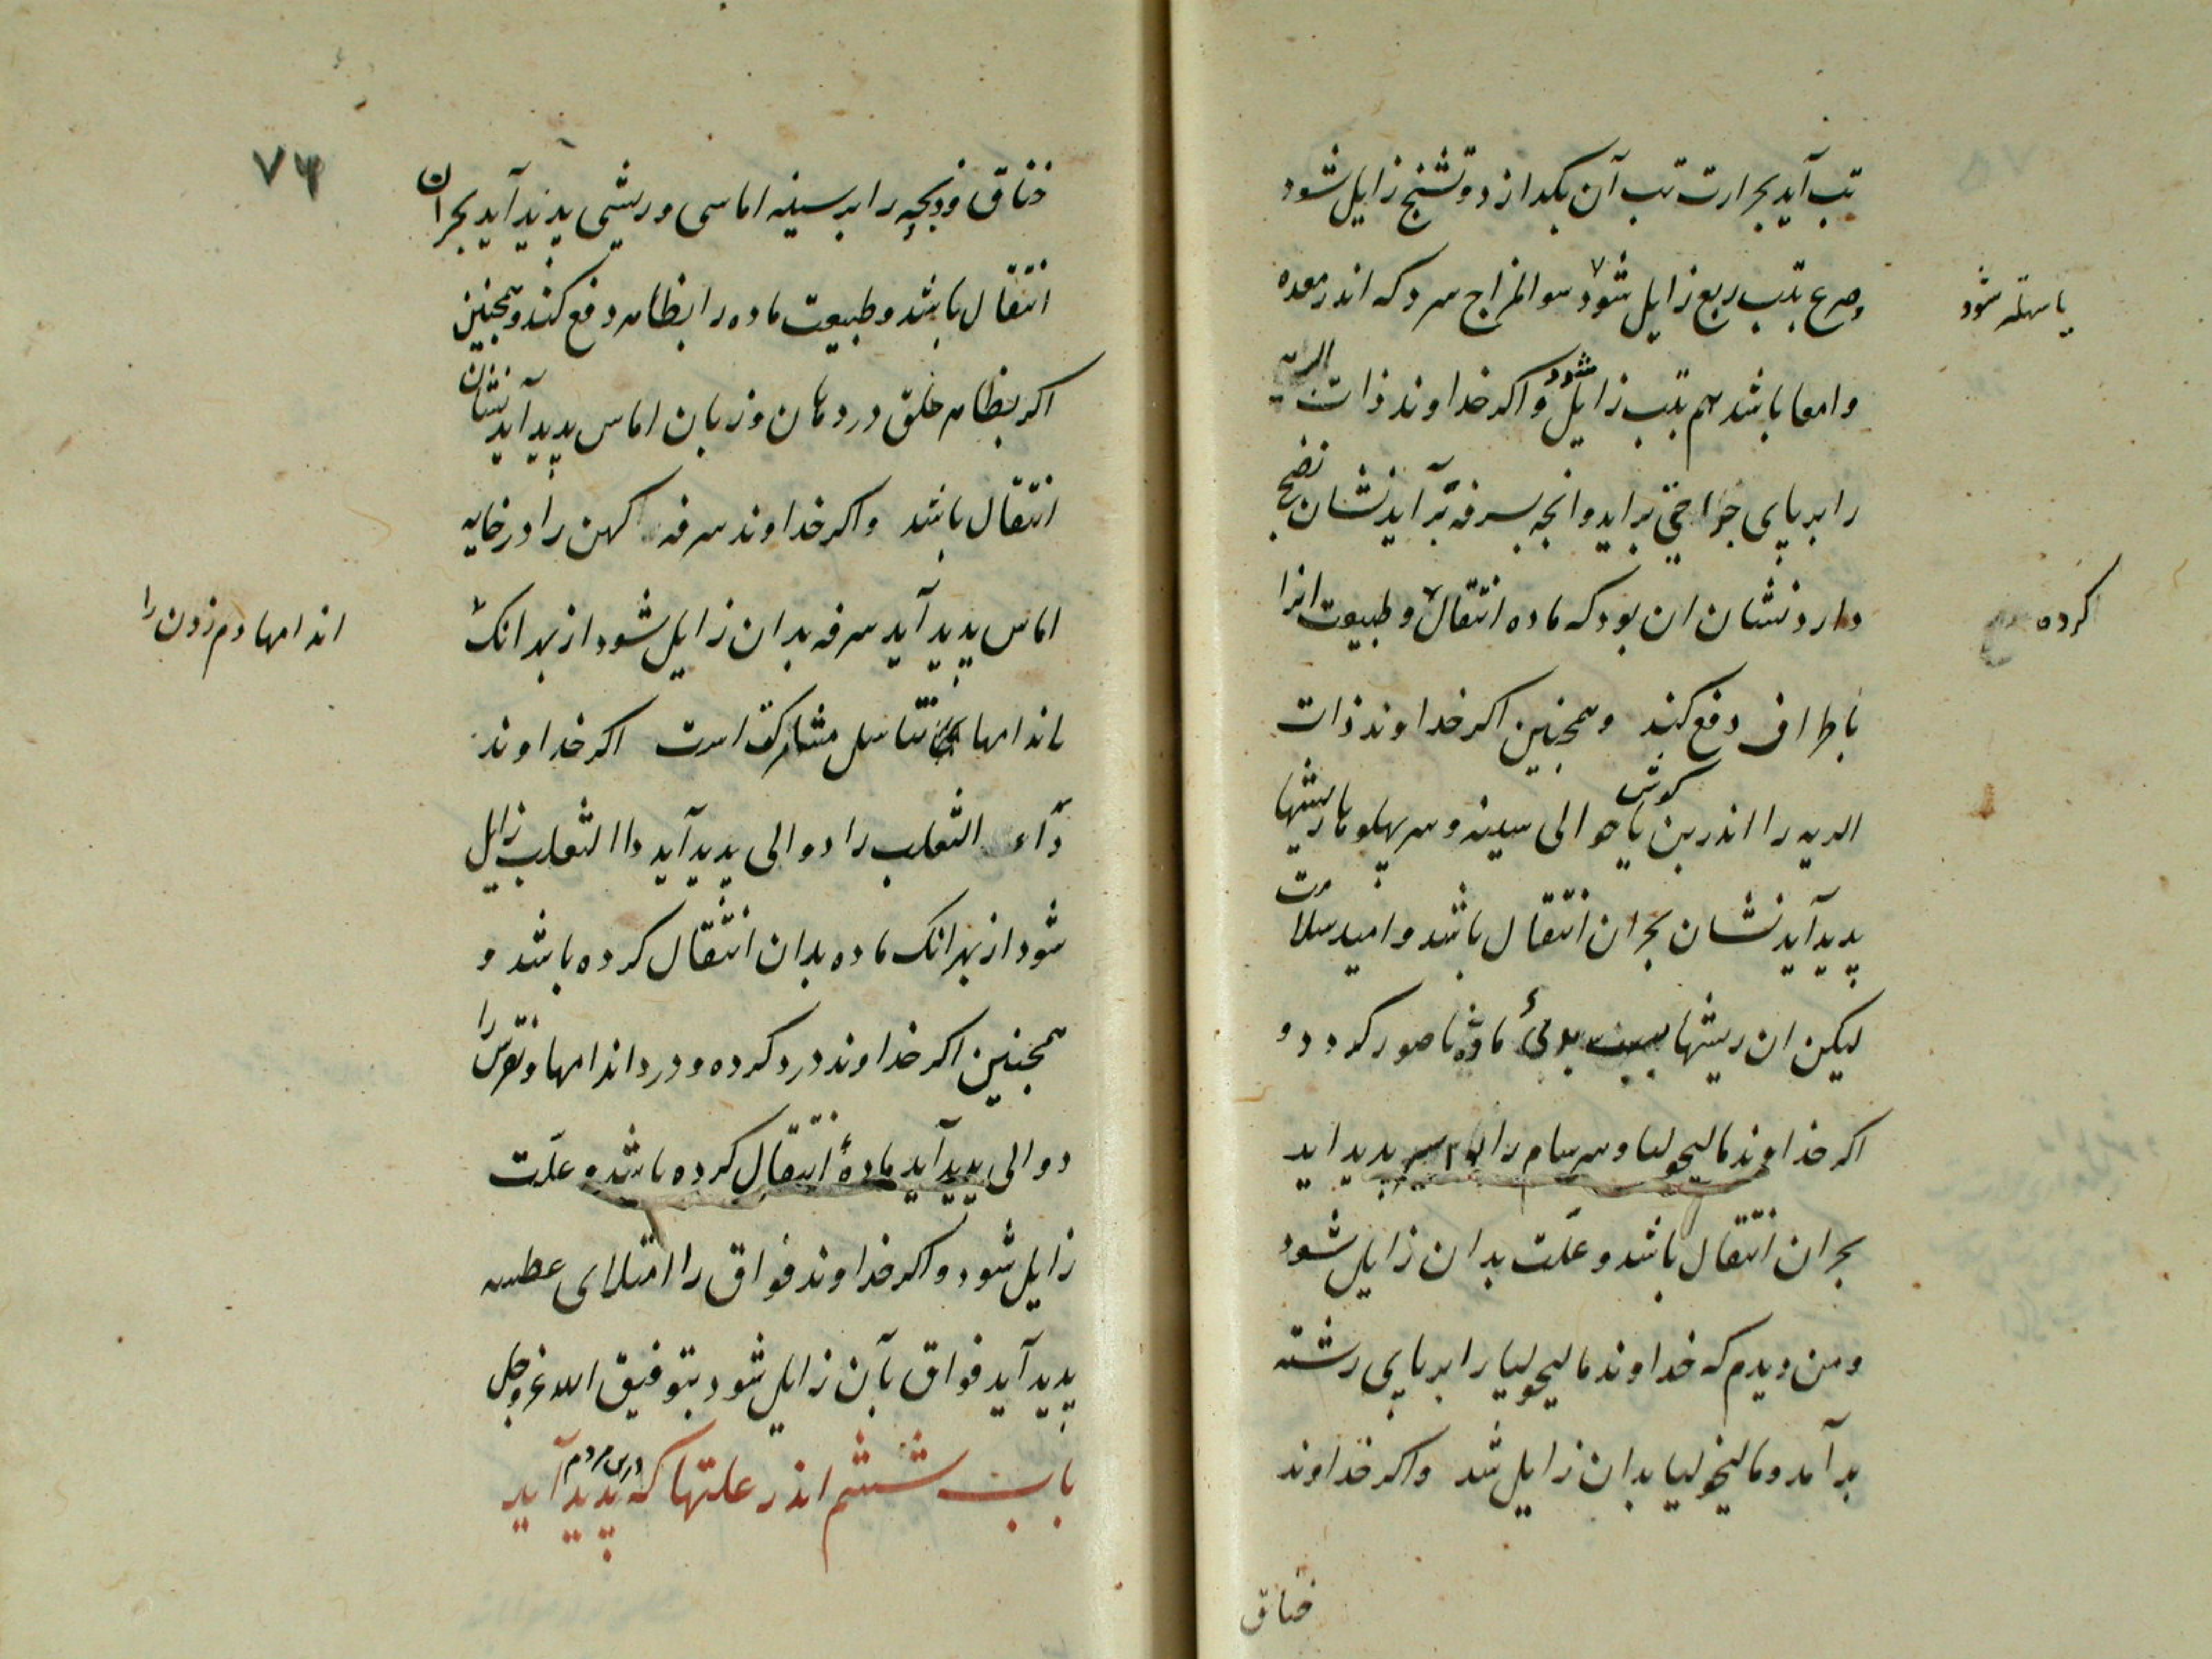 تب آید بحرارت تب آن بکدازد و تشنج زایل شود
وصرع بتب ربع زایل شود سوالمزاج سرد که اندر معده
یا سهلتر شود
وامعا باشد هم بتب زایل شود واکر خداوند ذات الریه
را بر پای جراحتی براید وانچه بسرفه برآید نشان نضج
دارد نشان ان بود که ماده انتقال وطبیعت انرا
کرده
باطراف دفع کند وهمچنین اکر خداوند ذات
الریه را اندر بن کوش یا حوالی سینه وسر پهلوها ریشها
پدید آید نشان بحران انتقال باشد وامید سلامت
لیکن ان ریشها بسبب بدی ماده ناصور کردد و
اکر خداوند مالیخولیا وسرسام را بواسیر پدید اید
بحران انتقال باشد وعلّت بدان زایل شود
ومن دیدم که خداوند مالیخولیا را بر پای رشته
بر آمد ومالیخولیا بدان زایل شد واکر خداوند
خناق
۷۴
خناق وذبحه را بر سینه اماسی وریشی پدید آید بحران
انتقال باشد وطبیعت ماده را بظاهر دفع کند وهمچنین
اکر بظاهر حلق در دهان وزبان اماس پدید آید نشان
انتقال باشد واکر خداوند سرفه کهن را در خایه
اماس پدید آید سرفه بدان زایل شود از بهر انک
اندامها دم زدن را
باندامهای تناسل مشارکت است اکر خداوند
دآء الثعلب را دوالی پدید آید داا الثعلب زایل
شود از بهر انک ماده بدان انتقال کرده باشد و
همچنین اکر خداوند درد کرده ودرد اندامها ونقرس را
دوالی پدید آید مادهٔ انتقال کرده باشد وعلّت
زایل شود واکر خداوند فواق را امتلای عطسه
پدید آید فواق بآن زایل شود بتوفیق الله عز وجل
باب ششم اندر علتها که در مردم پدید آید